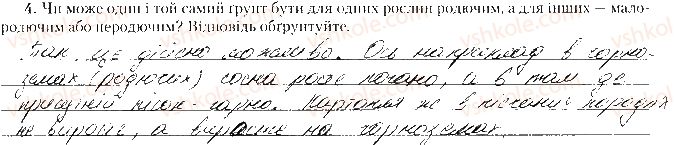 4. Чи може один і той самий ґрунт бути для одних рослин родючим, а для інших — мало-
родючим або неродючим? Відповідь обґрунтуйте.
Так це дійсно можливо. Ось наприклад в чорно-
земах (родючих) сосна росте погано, а в там де
присутній пісок - гарно. Картопля же в піщаних породах
не виросте, а виросте на чорноземах.